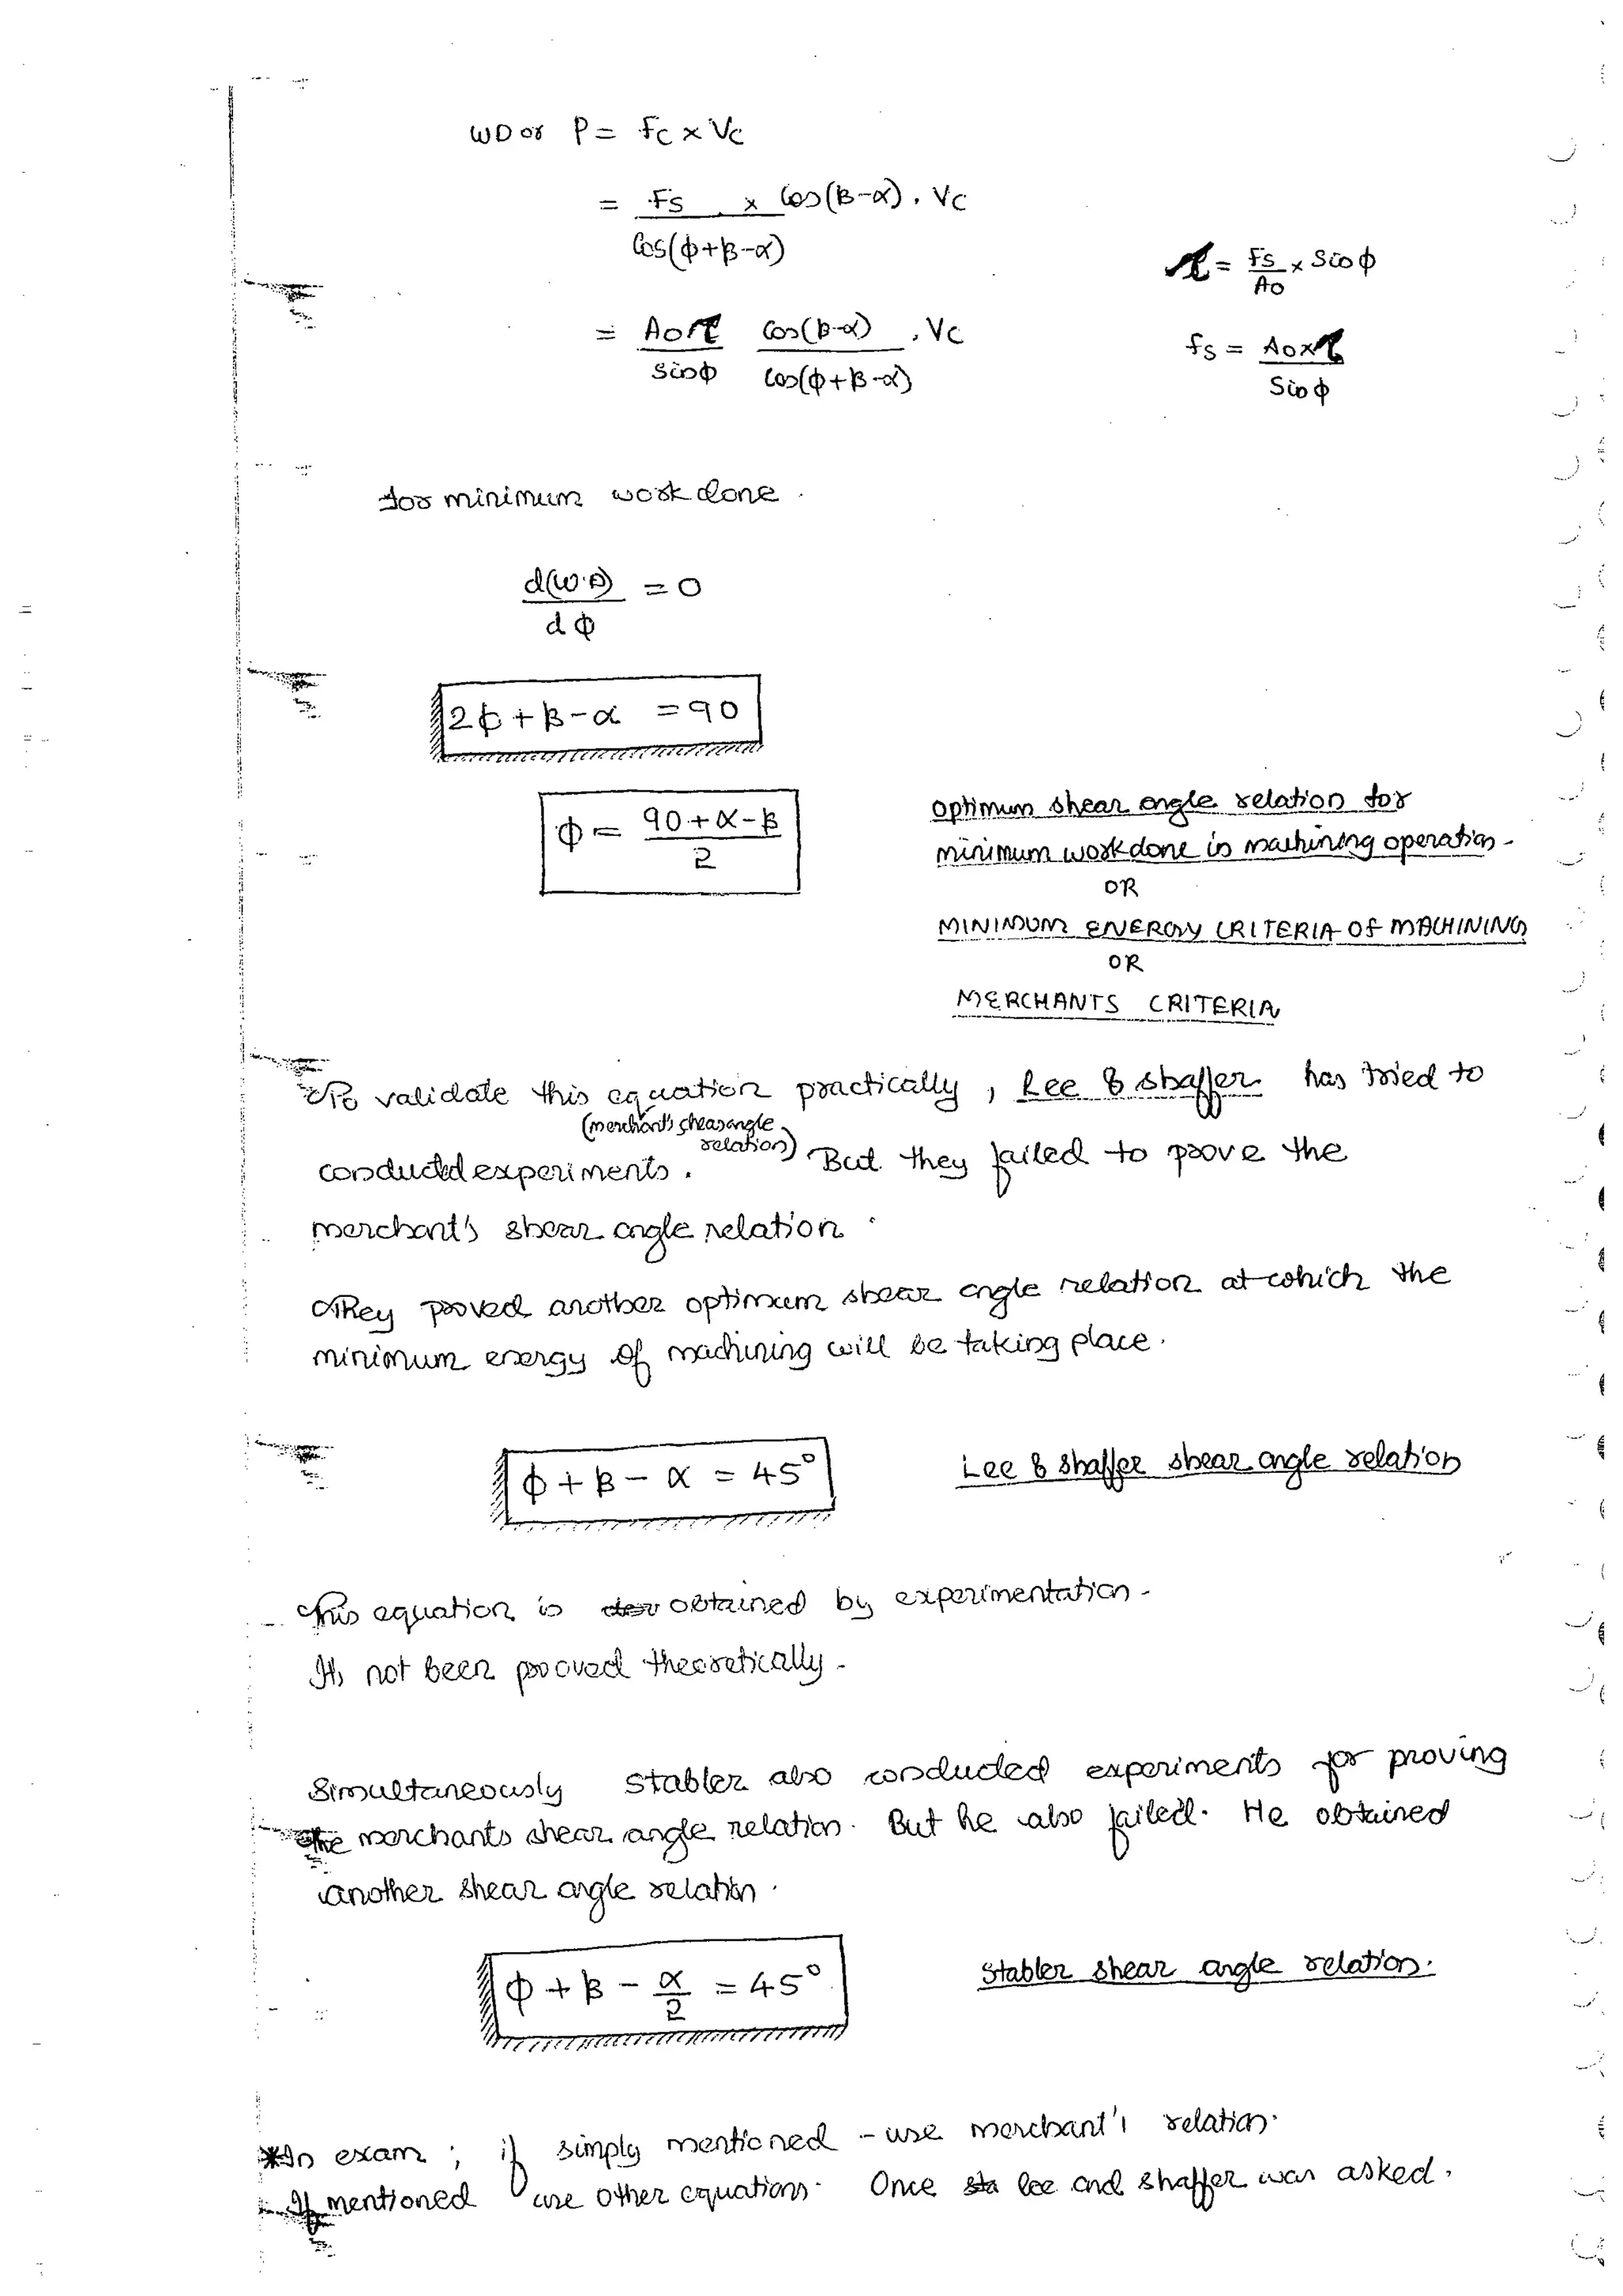 WD or P = Fc × Vc
= Fs / Cos(ϕ+β-α) × Cos(β-α) . Vc
τ = Fs / Ao × Sinϕ
= Aoτ / Sinϕ Cos(β-α) / Cos(ϕ+β-α) . Vc
fs = Ao×τ / Sinϕ
for minimum work done .
d(W.D) / dϕ = 0
2ϕ + β - α = 90
ϕ = 90 + α - β / 2
optimum shear angle relation for
minimum workdone in machining operation.
OR
MINIMUM ENERGY CRITERIA OF MACHINING
OR
MERCHANTS CRITERIA
To validate this equation practically, Lee & shaffer has tried to
(merchant's shear angle
relation)
conducted experiments. But they failed to prove the
merchant's shear angle relation.
They proved another optimum shear angle relation at which the
minimum energy of machining will be taking place.
ϕ + β - α = 45°
Lee & shaffer shear angle relation
This equation is obtained by experimentation.
It's not been prooved theoretically.
Simultaneously stabler also conducted experiments for proving
the merchants shear angle relation. But he also failed. He obtained
another shear angle relation.
ϕ + β - α/2 = 45°
Stabler shear angle relation.
*In exam ; if simply mentioned - use merchant's relation.
If mentioned use other equations. Once lee and shaffer was asked.